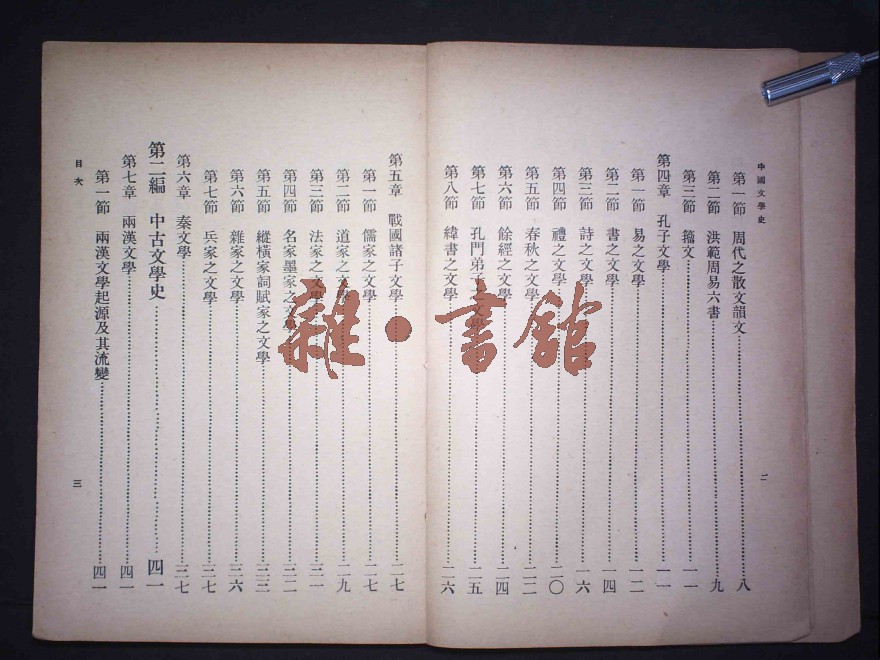 中國文學史
二
第一節 周代之散文韻文 八
第二節 洪範周易六書 九
第三節 籀文 一一
第四章 孔子文學 一一
第一節 易之文學 一二
第二節 書之文學 一四
第三節 詩之文學 一六
第四節 禮之文學 二〇
第五節 春秋之文學 二二
第六節 餘經之文學 二四
第七節 孔門弟子文學 二五
第八節 緯書之文學 二六
第五章 戰國諸子文學 二七
第一節 儒家之文學 二七
第二節 道家之文學 二九
第三節 法家之文學 三一
第四節 名家墨家之文學 三二
第五節 縱橫家詞賦家之文學 三三
第六節 雜家之文學 三六
第七節 兵家之文學 三七
第六章 秦文學 三七
第二編 中古文學史 四一
第七章 兩漢文學 四一
第一節 兩漢文學起源及其流變 四一
目次
三
雜·書館